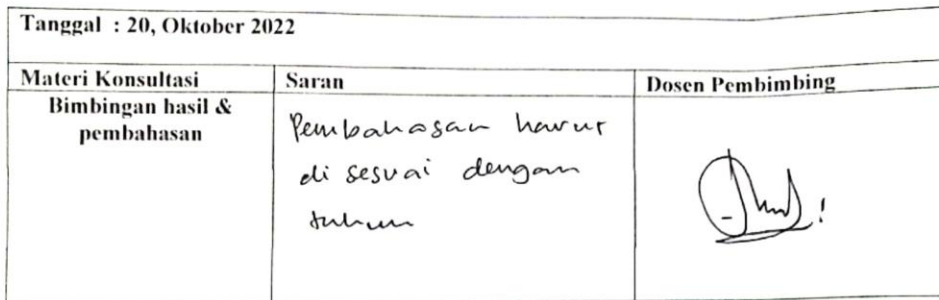 Tanggal : 20, Oktober 2022
Materi Konsultasi
Saran
Dosen Pembimbing
Bimbingan hasil &
pembahasan
Pembahasan harus
di sesuai dengan